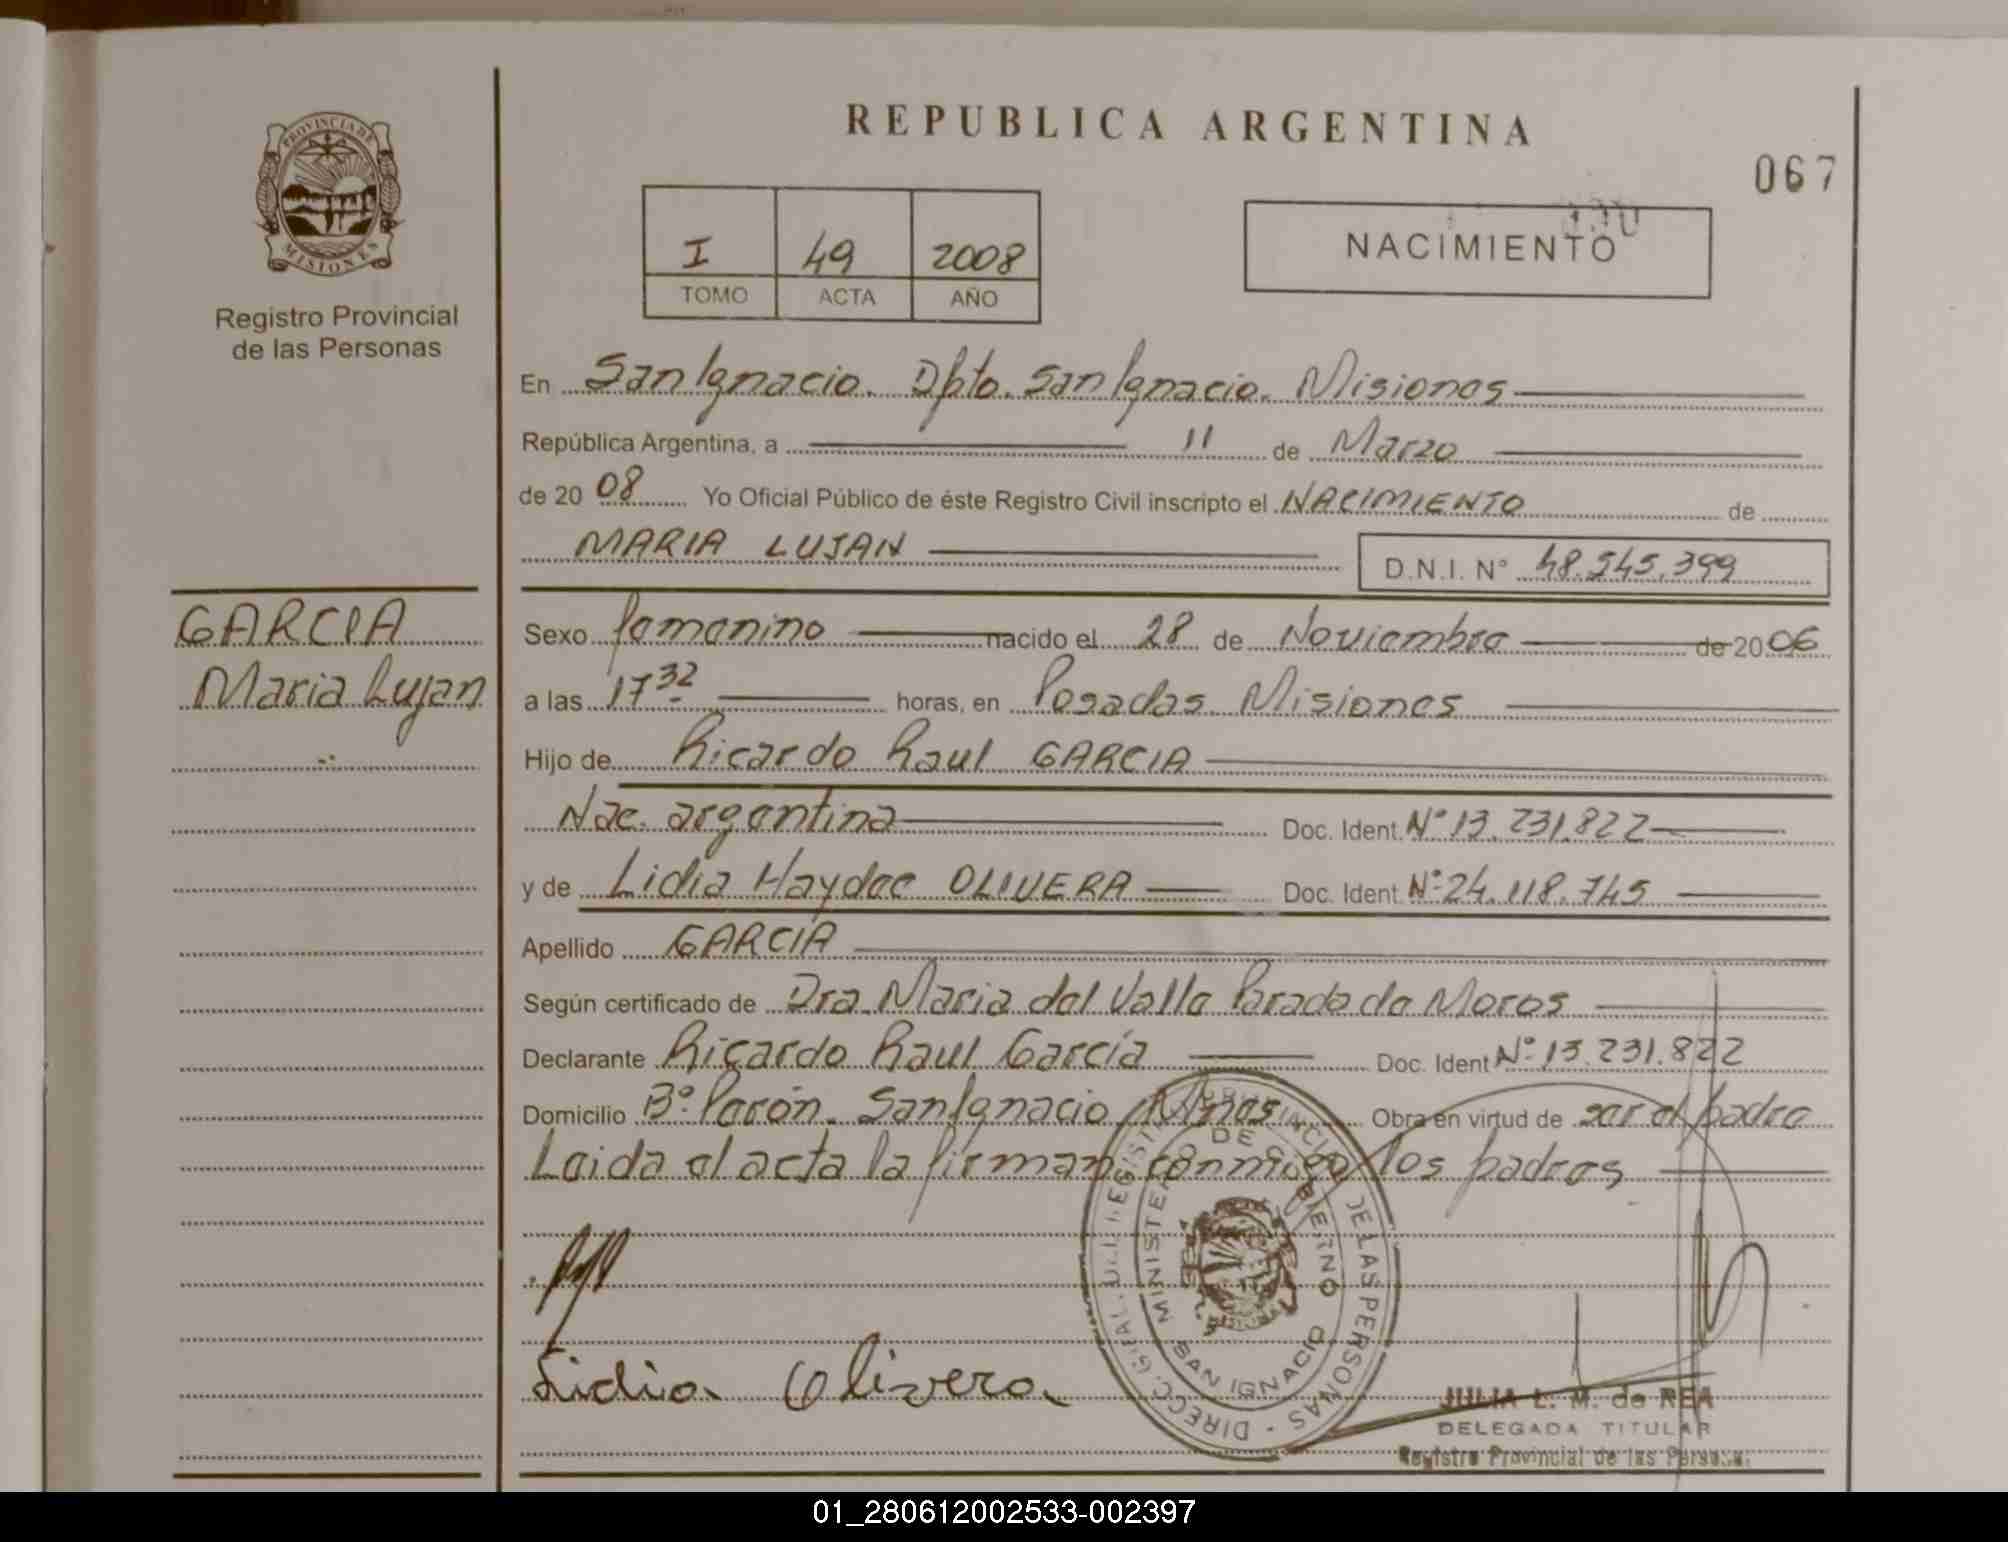 PROVINCIA DE
MISIONES
Registro Provincial
de las Personas
REPUBLICA ARGENTINA
067
I 49 2008
TOMO ACTA AÑO
NACIMIENTO
En San Ignacio. Dpto. San Ignacio. Misiones
República Argentina, a 11 de Marzo
de 20 08 Yo Oficial Público de éste Registro Civil inscripto el NACIMIENTO de
MARIA LUJAN D.N.I. N° 48.545.399
GARCIA
Maria Lujan
Sexo femenino nacido el 28 de Noviembre de 20 06
a las 17 32 horas, en Posadas Misiones
Hijo de Ricardo Raul GARCIA
Nac. argentina Doc. Ident. Nº 13.231.822
y de Lidia Haydee OLIVERA Doc. Ident. Nº 24.118.745
Apellido GARCIA
Según certificado de Dra. Maria del Valle Parada de Moros
Declarante Ricardo Raul García Doc. Ident Nº 13.231.822
Domicilio Bº Perón. San Ignacio Mnes. Obra en virtud de ser el padre
Leida el acta la firman conmigo los padres
Lidia Olivera
DIRECC. GRAL. DEL REGISTRO PROVINCIAL DE LAS PERSONAS
MINISTERIO DE GOBIERNO
SAN IGNACIO
JULIA L. M. de REA
DELEGADA TITULAR
Registro Provincial de las Personas
01_280612002533-002397